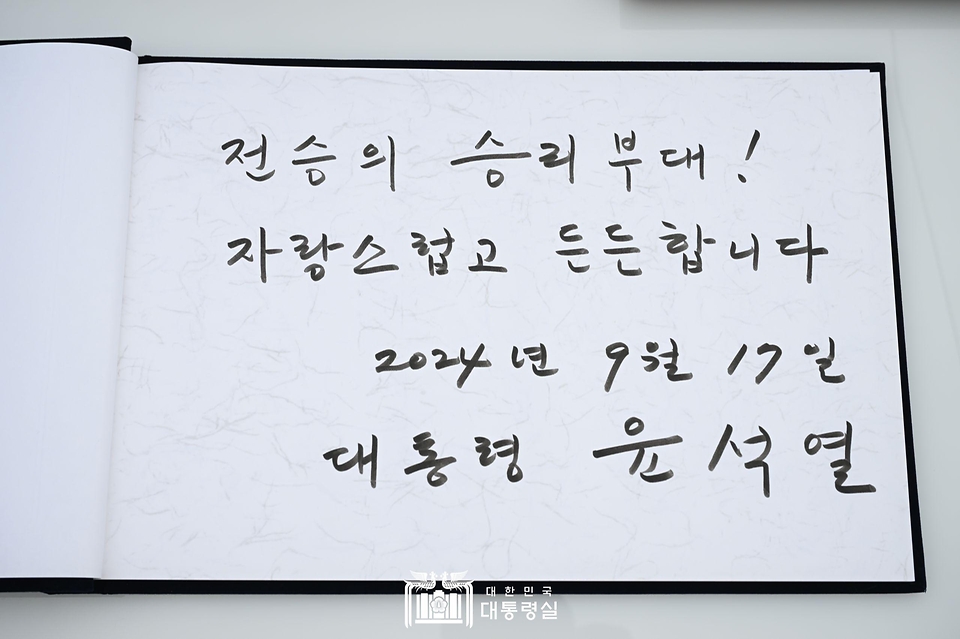 전승의 승리부대!
자랑스럽고 든든합니다
2024년 9월 17일
대통령 윤석열
대한민국
대통령실